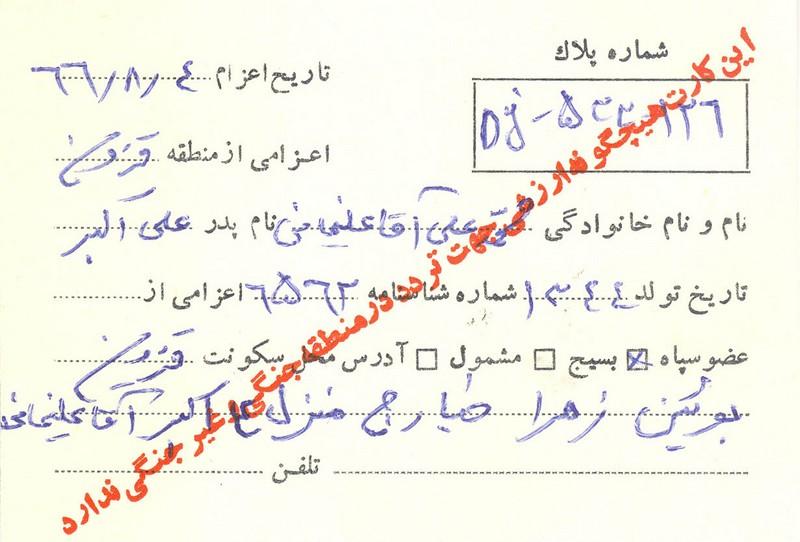 شماره پلاك
تاریخ اعزام ٦٦/٨/٤
اعزامی از منطقه قزوین
نام و نام خانوادگی علی آقاعلیخانی نام پدر علی اکبر
تاریخ تولد ١٣٤٤ شماره شناسنامه ٦٥٦٢ اعزامی از
عضو سپاه بسیج مشمول آدرس محل سکونت قزوین
بوئین زهرا خیارج منزل اکبر آقاعلیخانی
تلفن
این کارت هیچگونه ارزشی جهت تردد در منطقه جنگی و غیر جنگی ندارد